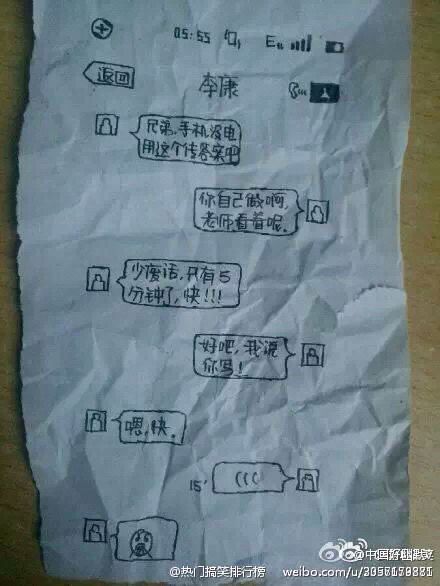 05:55 E
返回
李康
兄弟,手机没电
用这个传答案吧
你自己做啊,
老师看着呢.
少废话,只有5
分钟了,快!!!
好吧,我说
你写!
嗯,快.
15' (((
@热门搞笑排行榜
weibo.com/u/